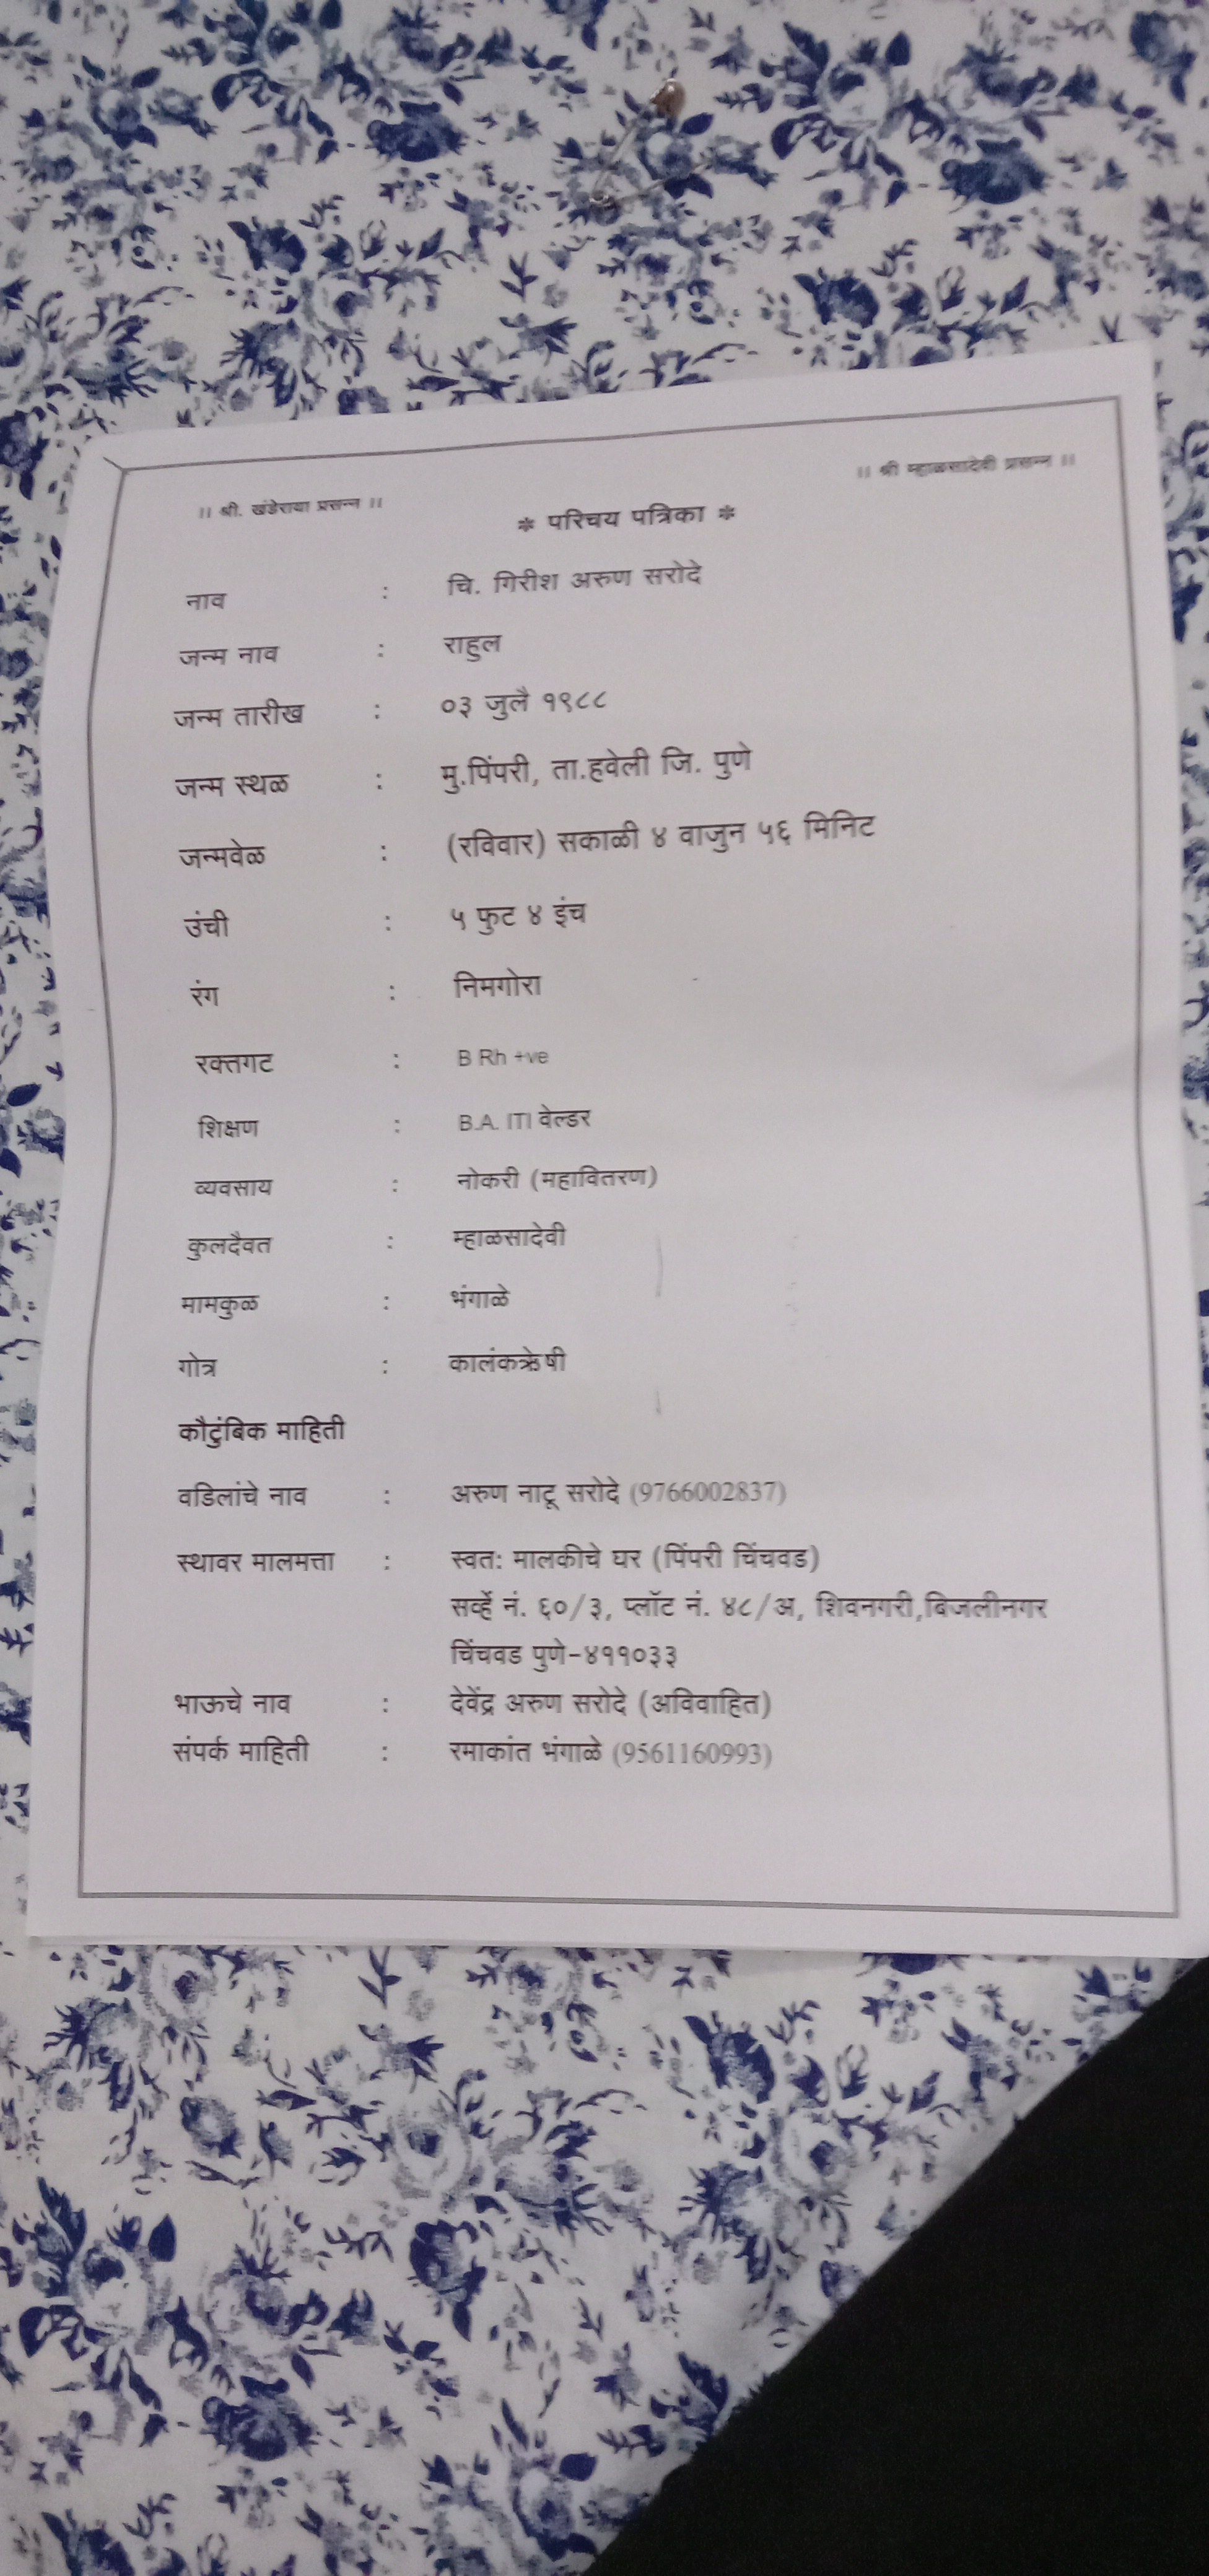 ।। श्री. खंडेराया प्रसन्न ।।
।। श्री म्हाळसादेवी प्रसन्न ।।
* परिचय पत्रिका *
नाव : चि. गिरीश अरुण सरोदे
जन्म नाव : राहुल
जन्म तारीख : ०३ जुलै १९८८
जन्म स्थळ : मु.पिंपरी, ता.हवेली जि. पुणे
जन्मवेळ : (रविवार) सकाळी ४ वाजुन ५६ मिनिट
उंची : ५ फुट ४ इंच
रंग : निमगोरा
रक्तगट : B Rh +ve
शिक्षण : B.A. ITI वेल्डर
व्यवसाय : नोकरी (महावितरण)
कुलदैवत : म्हाळसादेवी
मामकुळ : भंगाळे
गोत्र : कालंकऋेषी
कौटुंबिक माहिती
वडिलांचे नाव : अरुण नाटू सरोदे (9766002837)
स्थावर मालमत्ता : स्वतः मालकीचे घर (पिंपरी चिंचवड)
सर्व्हे नं. ६०/३, प्लॉट नं. ४८/अ, शिवनगरी,बिजलीनगर
चिंचवड पुणे-४११०३३
भाऊचे नाव : देवेंद्र अरुण सरोदे (अविवाहित)
संपर्क माहिती : रमाकांत भंगाळे (9561160993)